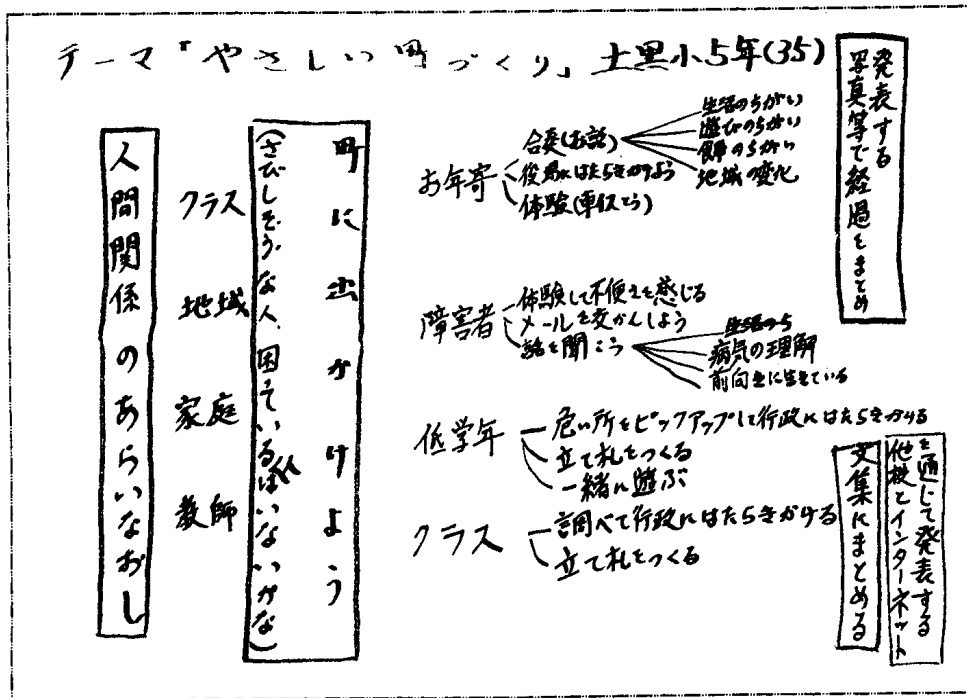 テーマ「やさしい町づくり」 土黒小5年(35)
人間関係のあらいなおし
クラス
地域
家庭
教師
町に出かけよう
(さびしそうな人、困っている人はいないかな)
お年寄
合奏(お話)
生活のちがい
遊びのちがい
地域の変化
体験(車いすとう)
障害者
体験して不便さを感じる
メールを交かんしよう
話を聞こう
病気の理解
前向きに生きている
低学年
危い所をピックアップして行政にはたらきかける
立て札をつくる
一緒に遊ぶ
クラス
調べて行政にはたらきかける
立て札をつくる
写真等で経過をまとめ
発表する
文集にまとめる
他校とインターネット
を通じて発表する